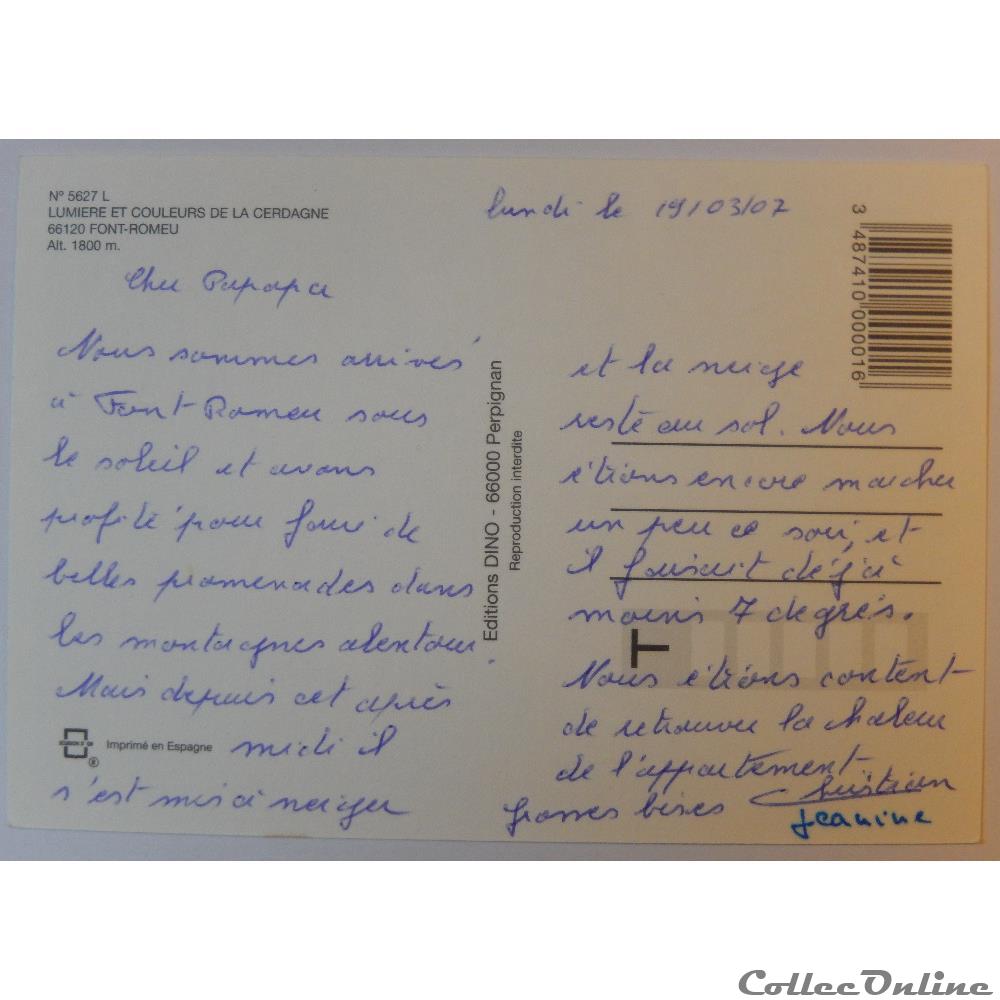 N° 5627 L
LUMIERE ET COULEURS DE LA CERDAGNE
66120 FONT-ROMEU
Alt. 1800 m.
lundi le 19/03/07
Cher Papapa
Nous sommes arrivés
à Font-Romeu sous
le soleil et avons
profité pour faire de
belles promenades dans
les montagnes alentour.
Mais depuis cet après
midi il
s'est mis à neiger
Imprimé en Espagne
®
Editions DINO - 66000 Perpignan
Reproduction interdite
3 487410 000016
et la neige
reste au sol. Nous
étions encore marcher
un peu ce soir, et
il faisait déjà
moins 7 degrés.
T
Nous étions content
de retrouver la chaleur
de l'appartement
Grosses bises Christian
Jeanine
CollecOnline